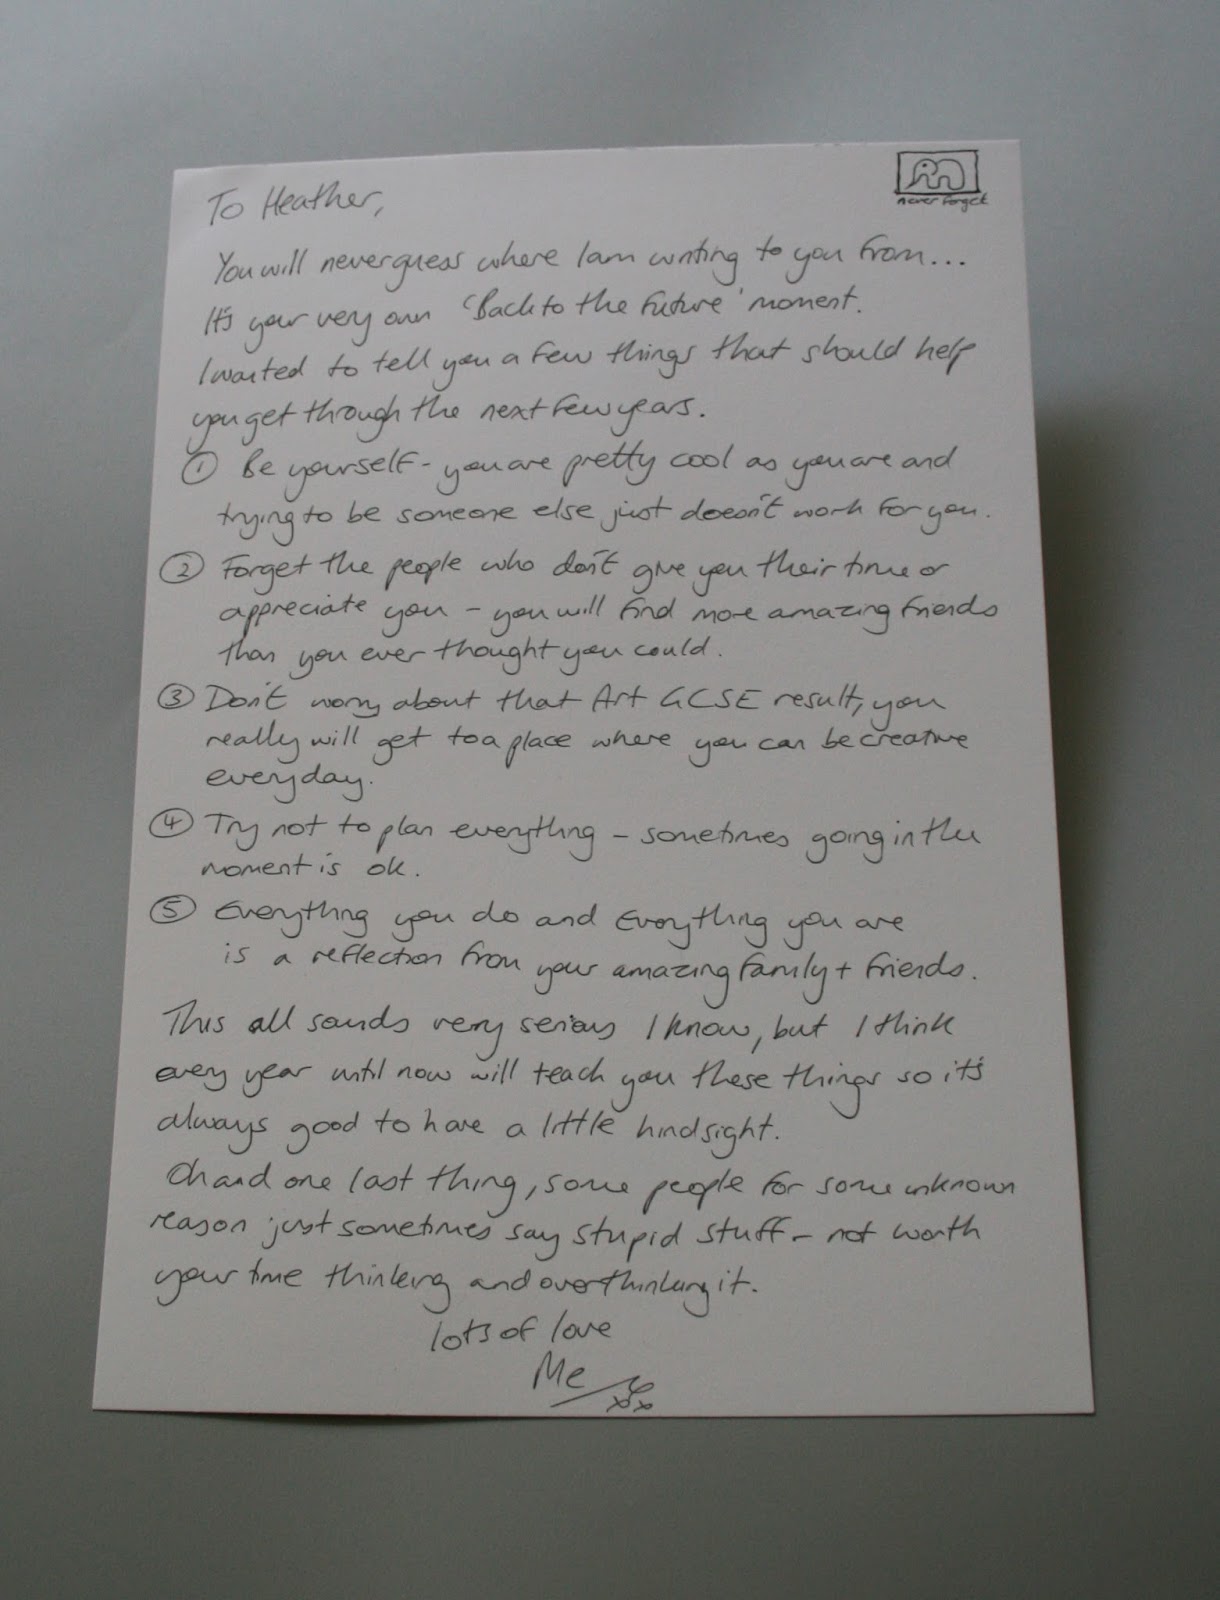 To Heather,
never forget
You will never guess where I am writing to you from...
It's your very own 'Back to the Future' moment.
I wanted to tell you a few things that should help
you get through the next few years.
① Be yourself - you are pretty cool as you are and
trying to be someone else just doesn't work for you.
② Forget the people who don't give you their time or
appreciate you - you will find more amazing friends
than you ever thought you could.
③ Don't worry about that Art GCSE result, you
really will get to a place where you can be creative
everyday.
④ Try not to plan everything - sometimes going in the
moment is ok.
⑤ Everything you do and everything you are
is a reflection from your amazing family + friends.
This all sounds very serious I know, but I think
every year until now will teach you these things so it's
always good to have a little hindsight.
Oh and one last thing, some people for some unknown
reason just sometimes say stupid stuff - not worth
your time thinking and overthinking it.
lots of love
Me
xx